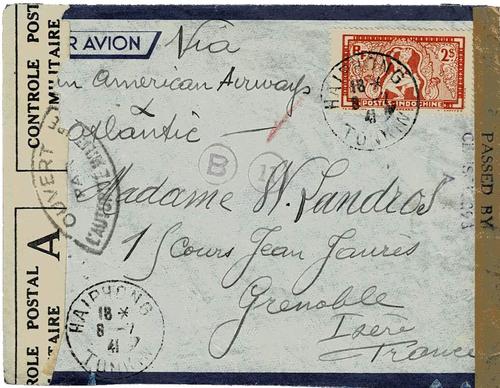 CONTROLE POST
MILITAIRE
R AVION
Via
an American Airways
&
Atlantic
2$
POSTES-INDOCHINE
HAIPHONG
18 *
8 -7
41
TONKIN
OUVERT
PAR
L'AUTORITÉ MILITAIRE
B
A
PASSED BY
Madame W. Landros
15 Cours Jean Jaurès
Grenoble
Isère
France
ROLE POSTAL
TAIRE
A
HAIPHONG
18 *
8 -7
41
TONKIN